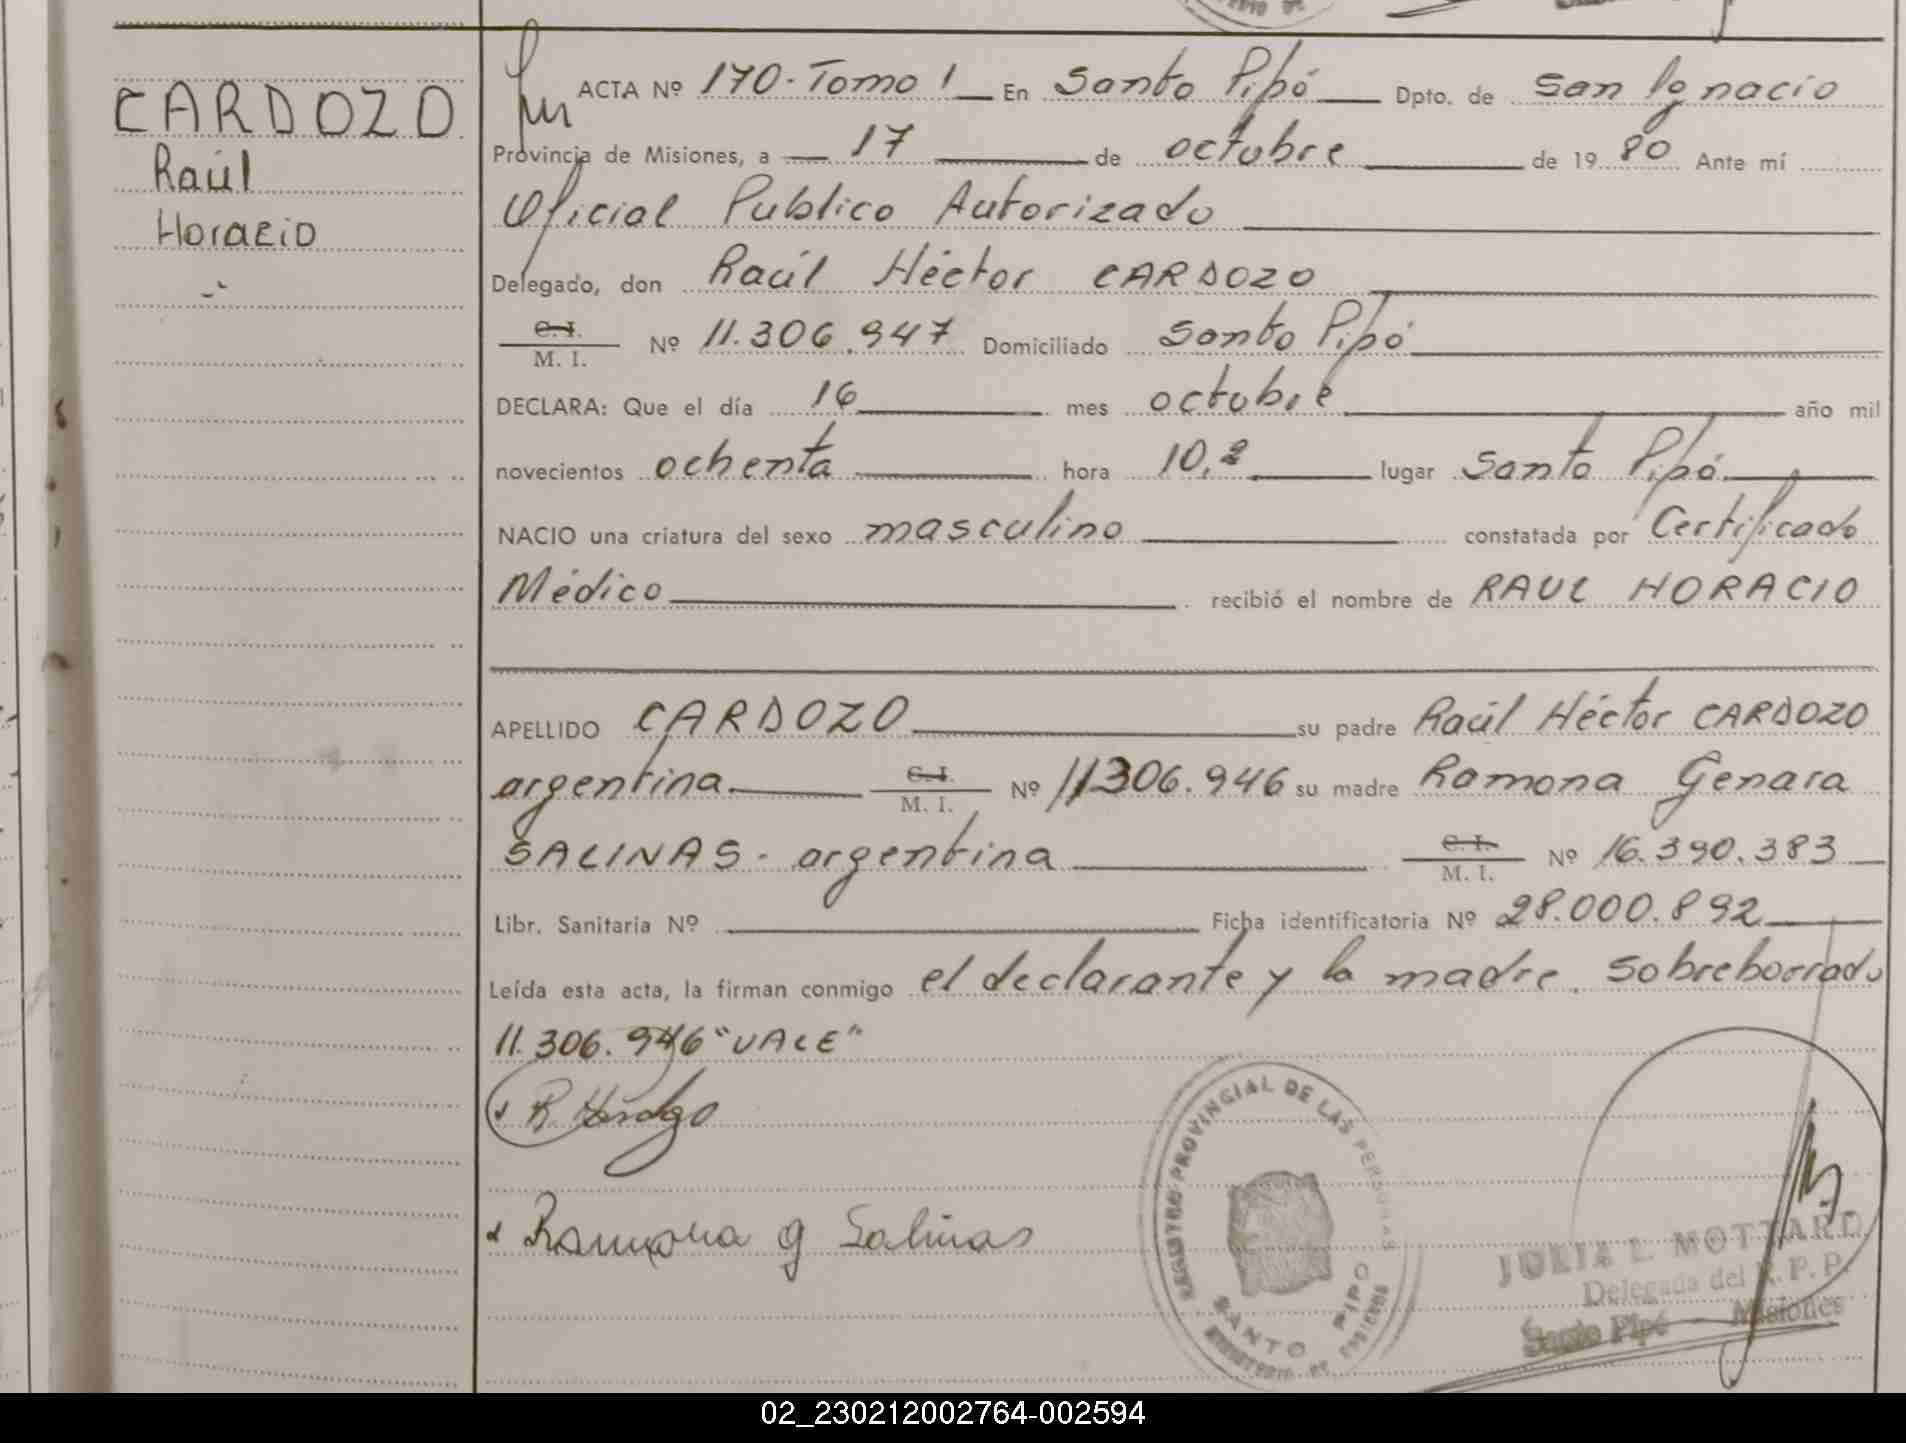 CARDOZO
Raúl
Horacio
ACTA Nº 170-Tomo 1 En Santo Pipó Dpto. de San Ignacio
Provincia de Misiones, a 17 de octubre de 19 80 Ante mí
Oficial Publico Autorizado
Delegado, don Raúl Héctor CARDOZO
C. I. M. I. Nº 11.306.947 Domiciliado Santo Pipó
DECLARA: Que el día 16 mes octubre año mil
novecientos ochenta hora 10,2 lugar Santo Pipó
NACIO una criatura del sexo masculino constatada por Certificado
Médico recibió el nombre de RAUL HORACIO
APELLIDO CARDOZO su padre Raúl Héctor CARDOZO
argentina. C. I. M. I. Nº 11306.946 su madre Ramona Genara
SALINAS - argentina C. I. M. I. Nº 16.390.383
Libr. Sanitaria Nº Ficha identificatoria Nº 28.000.892
Leída esta acta, la firman conmigo el declarante y la madre. Sobreborrado
11.306.946 "VALE"
Ramona g Salinas
REGISTRO PROVINCIAL DE LAS PERSONAS
SANTO PIPO
MINISTERIO DE
JULIA L. MOTTARD
Delegada del R. P. P.
Santo Pipó - Misiones
02_230212002764-002594